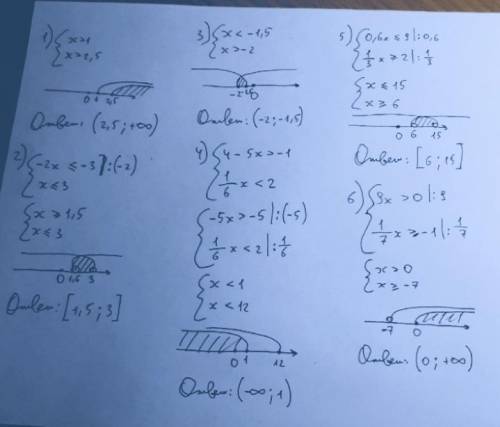 1) { x>1
x>2,5
0 1 2,5
Ответ: (2,5; +∞)
2) { -2x ≤ -3 |:(-2)
x ≤ 3
{ x ≥ 1,5
x ≤ 3
0 1,5 3
Ответ: [1,5; 3]
3) { x < -1,5
x > -2
-2 0
Ответ: (-2; -1,5)
4) { 4 - 5x > -1
1/6 x < 2
{ -5x > -5 |:(-5)
1/6 x < 2 |: 1/6
{ x < 1
x < 12
0 1 12
Ответ: (-∞; 1)
5) { 0,6x ≤ 9 |: 0,6
1/3 x ≥ 2 |: 1/3
{ x ≤ 15
x ≥ 6
0 6 15
Ответ: [6; 15]
6) { 9x > 0 |: 9
1/7 x ≥ -1 |: 1/7
{ x > 0
x ≥ -7
-7 0
Ответ: (0; +∞)